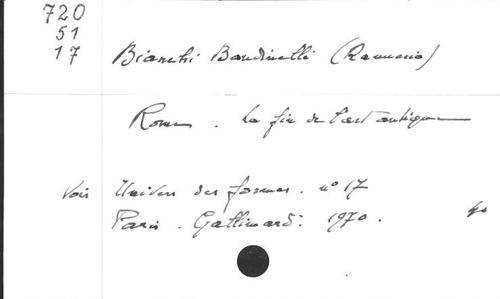 720
51
17
Bianchi Bandinelli (Ranuccio)
Rome. La fin de l'art antique
Voir Univers des formes. n° 17
Paris. Gallimard. 1970.